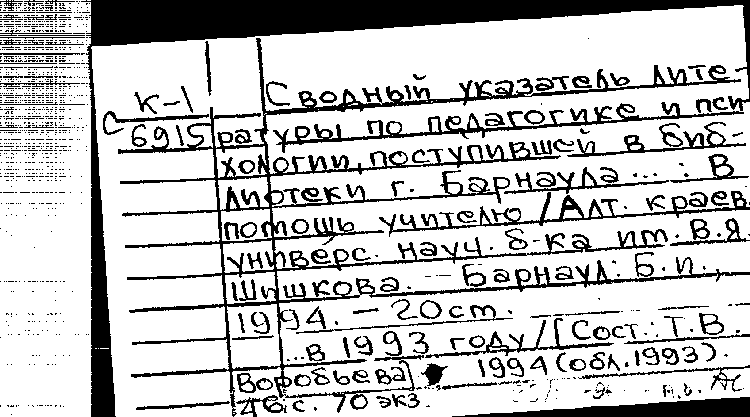 Сводный указатель лите-
К-1
С 6915 ратуры по педагогике и пси
хологии, поступившей в биб-
лиотеки г. Барнаула ... : В
помощь учителю / Алт. краев.
универс. науч. б-ка им. В.Я.
Шишкова. — Барнаул: Б.и.,
1994. — 20 см.
...в 1993 году / [Сост.: Т.В.
Воробьева] 1994 (обл. 1993).
46 с. 70 экз.